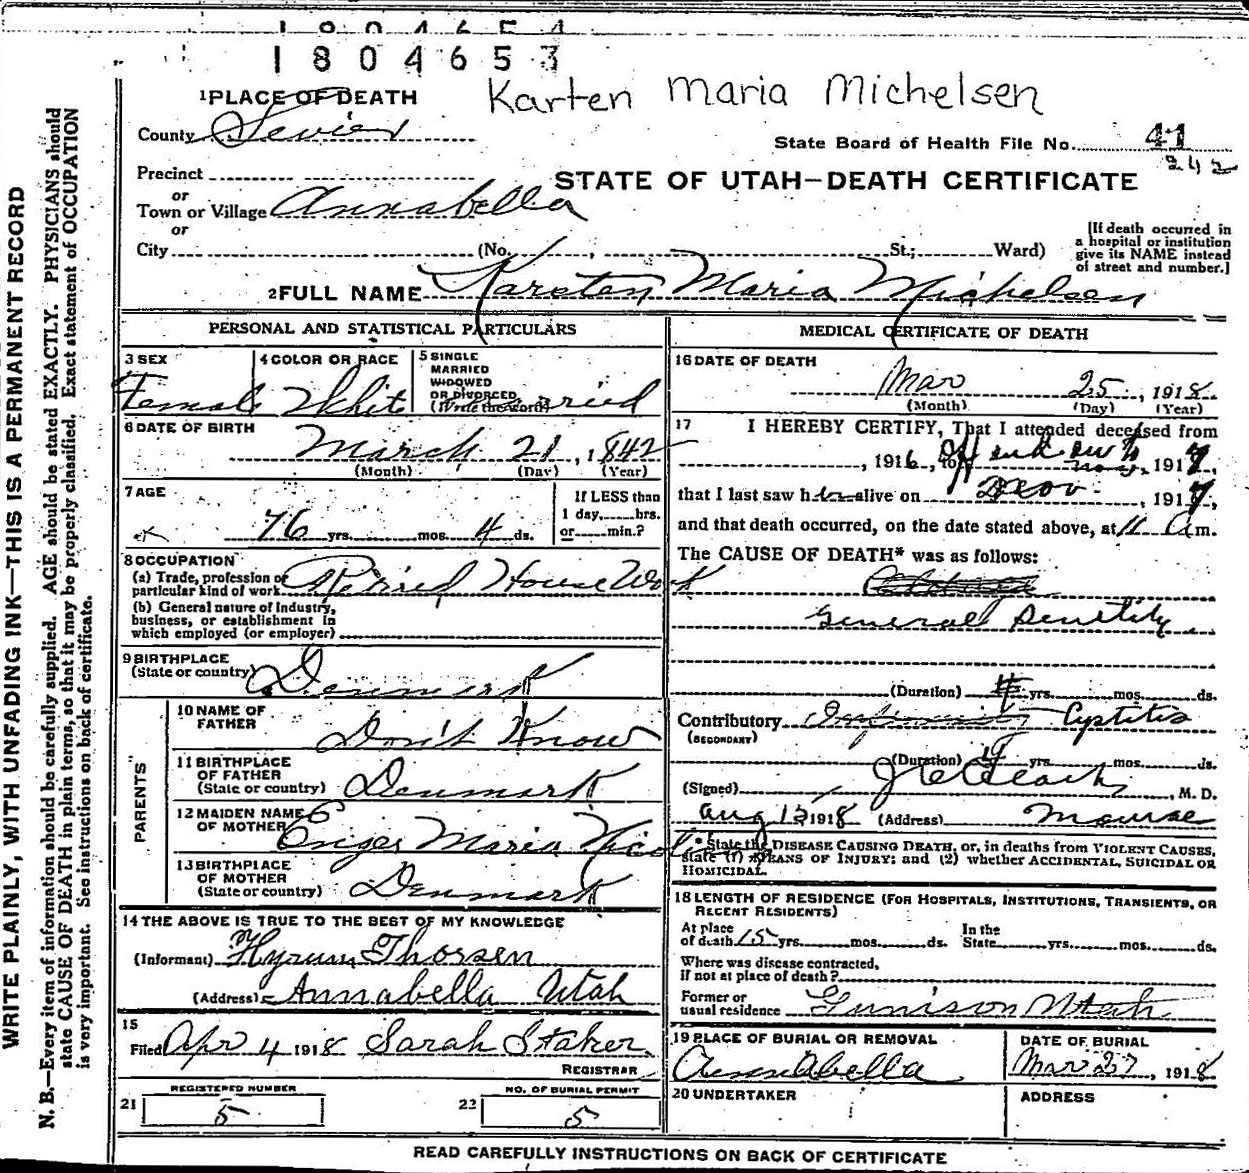 1804654
1804653
Karten Maria Michelsen
1 PLACE OF DEATH
County Sevier
State Board of Health File No. 41
242
Precinct
or
STATE OF UTAH—DEATH CERTIFICATE
Town or Village Annabella
or
City (No. , St.; Ward)
[If death occurred in
a hospital or institution
give its NAME instead
of street and number.]
2 FULL NAME Karsten Maria Michelsen
PERSONAL AND STATISTICAL PARTICULARS
3 SEX
Female
4 COLOR OR RACE
White
5 SINGLE
MARRIED
WIDOWED
OR DIVORCED
(Write the word)
Married
6 DATE OF BIRTH
March 21, 1842
(Month) (Day) (Year)
7 AGE
76 yrs. mos. 4 ds.
If LESS than
1 day, hrs.
or min.?
8 OCCUPATION
(a) Trade, profession or
particular kind of work Retired House Work
(b) General nature of Industry,
business, or establishment in
which employed (or employer)
9 BIRTHPLACE
(State or country) Denmark
PARENTS
10 NAME OF
FATHER Don't Know
11 BIRTHPLACE
OF FATHER
(State or country) Denmark
12 MAIDEN NAME
OF MOTHER Maria
13 BIRTHPLACE
OF MOTHER
(State or country) Denmark
14 THE ABOVE IS TRUE TO THE BEST OF MY KNOWLEDGE
(Informant) Hyrum Thorsen
(Address) Annabella Utah
15
Filed Apr 4 1918 Sarah Staker
REGISTRAR
REGISTERED NUMBER
21 5
NO. OF BURIAL PERMIT
22 5
MEDICAL CERTIFICATE OF DEATH
16 DATE OF DEATH
Mar 25, 1918
(Month) (Day) (Year)
17 I HEREBY CERTIFY, That I attended deceased from
, 1916, to Nov, 1917,
that I last saw her alive on Nov. , 1917,
and that death occurred, on the date stated above, at 11 a m.
The CAUSE OF DEATH* was as follows:
General Senility
(Duration) yrs. mos. ds.
Contributory Cystitis
(SECONDARY)
(Duration) yrs. mos. ds.
(Signed) , M. D.
Aug 13 1918 (Address) Monroe
* State the DISEASE CAUSING DEATH, or, in deaths from VIOLENT CAUSES,
state (1) MEANS OF INJURY; and (2) whether ACCIDENTAL, SUICIDAL OR
HOMICIDAL.
18 LENGTH OF RESIDENCE (FOR HOSPITALS, INSTITUTIONS, TRANSIENTS, OR
RECENT RESIDENTS)
At place
of death 15 yrs. mos. ds.
In the
State yrs. mos. ds.
Where was disease contracted,
if not at place of death?
Former or
usual residence Gunnison Utah
19 PLACE OF BURIAL OR REMOVAL
Annabella
DATE OF BURIAL
Mar 27, 1918
20 UNDERTAKER
ADDRESS
READ CAREFULLY INSTRUCTIONS ON BACK OF CERTIFICATE
WRITE PLAINLY, WITH UNFADING INK—THIS IS A PERMANENT RECORD
N. B.—Every item of information should be carefully supplied. AGE should be stated EXACTLY. PHYSICIANS should
state CAUSE OF DEATH in plain terms, so that it may be properly classified. Exact statement of OCCUPATION
is very important. See instructions on back of certificate.